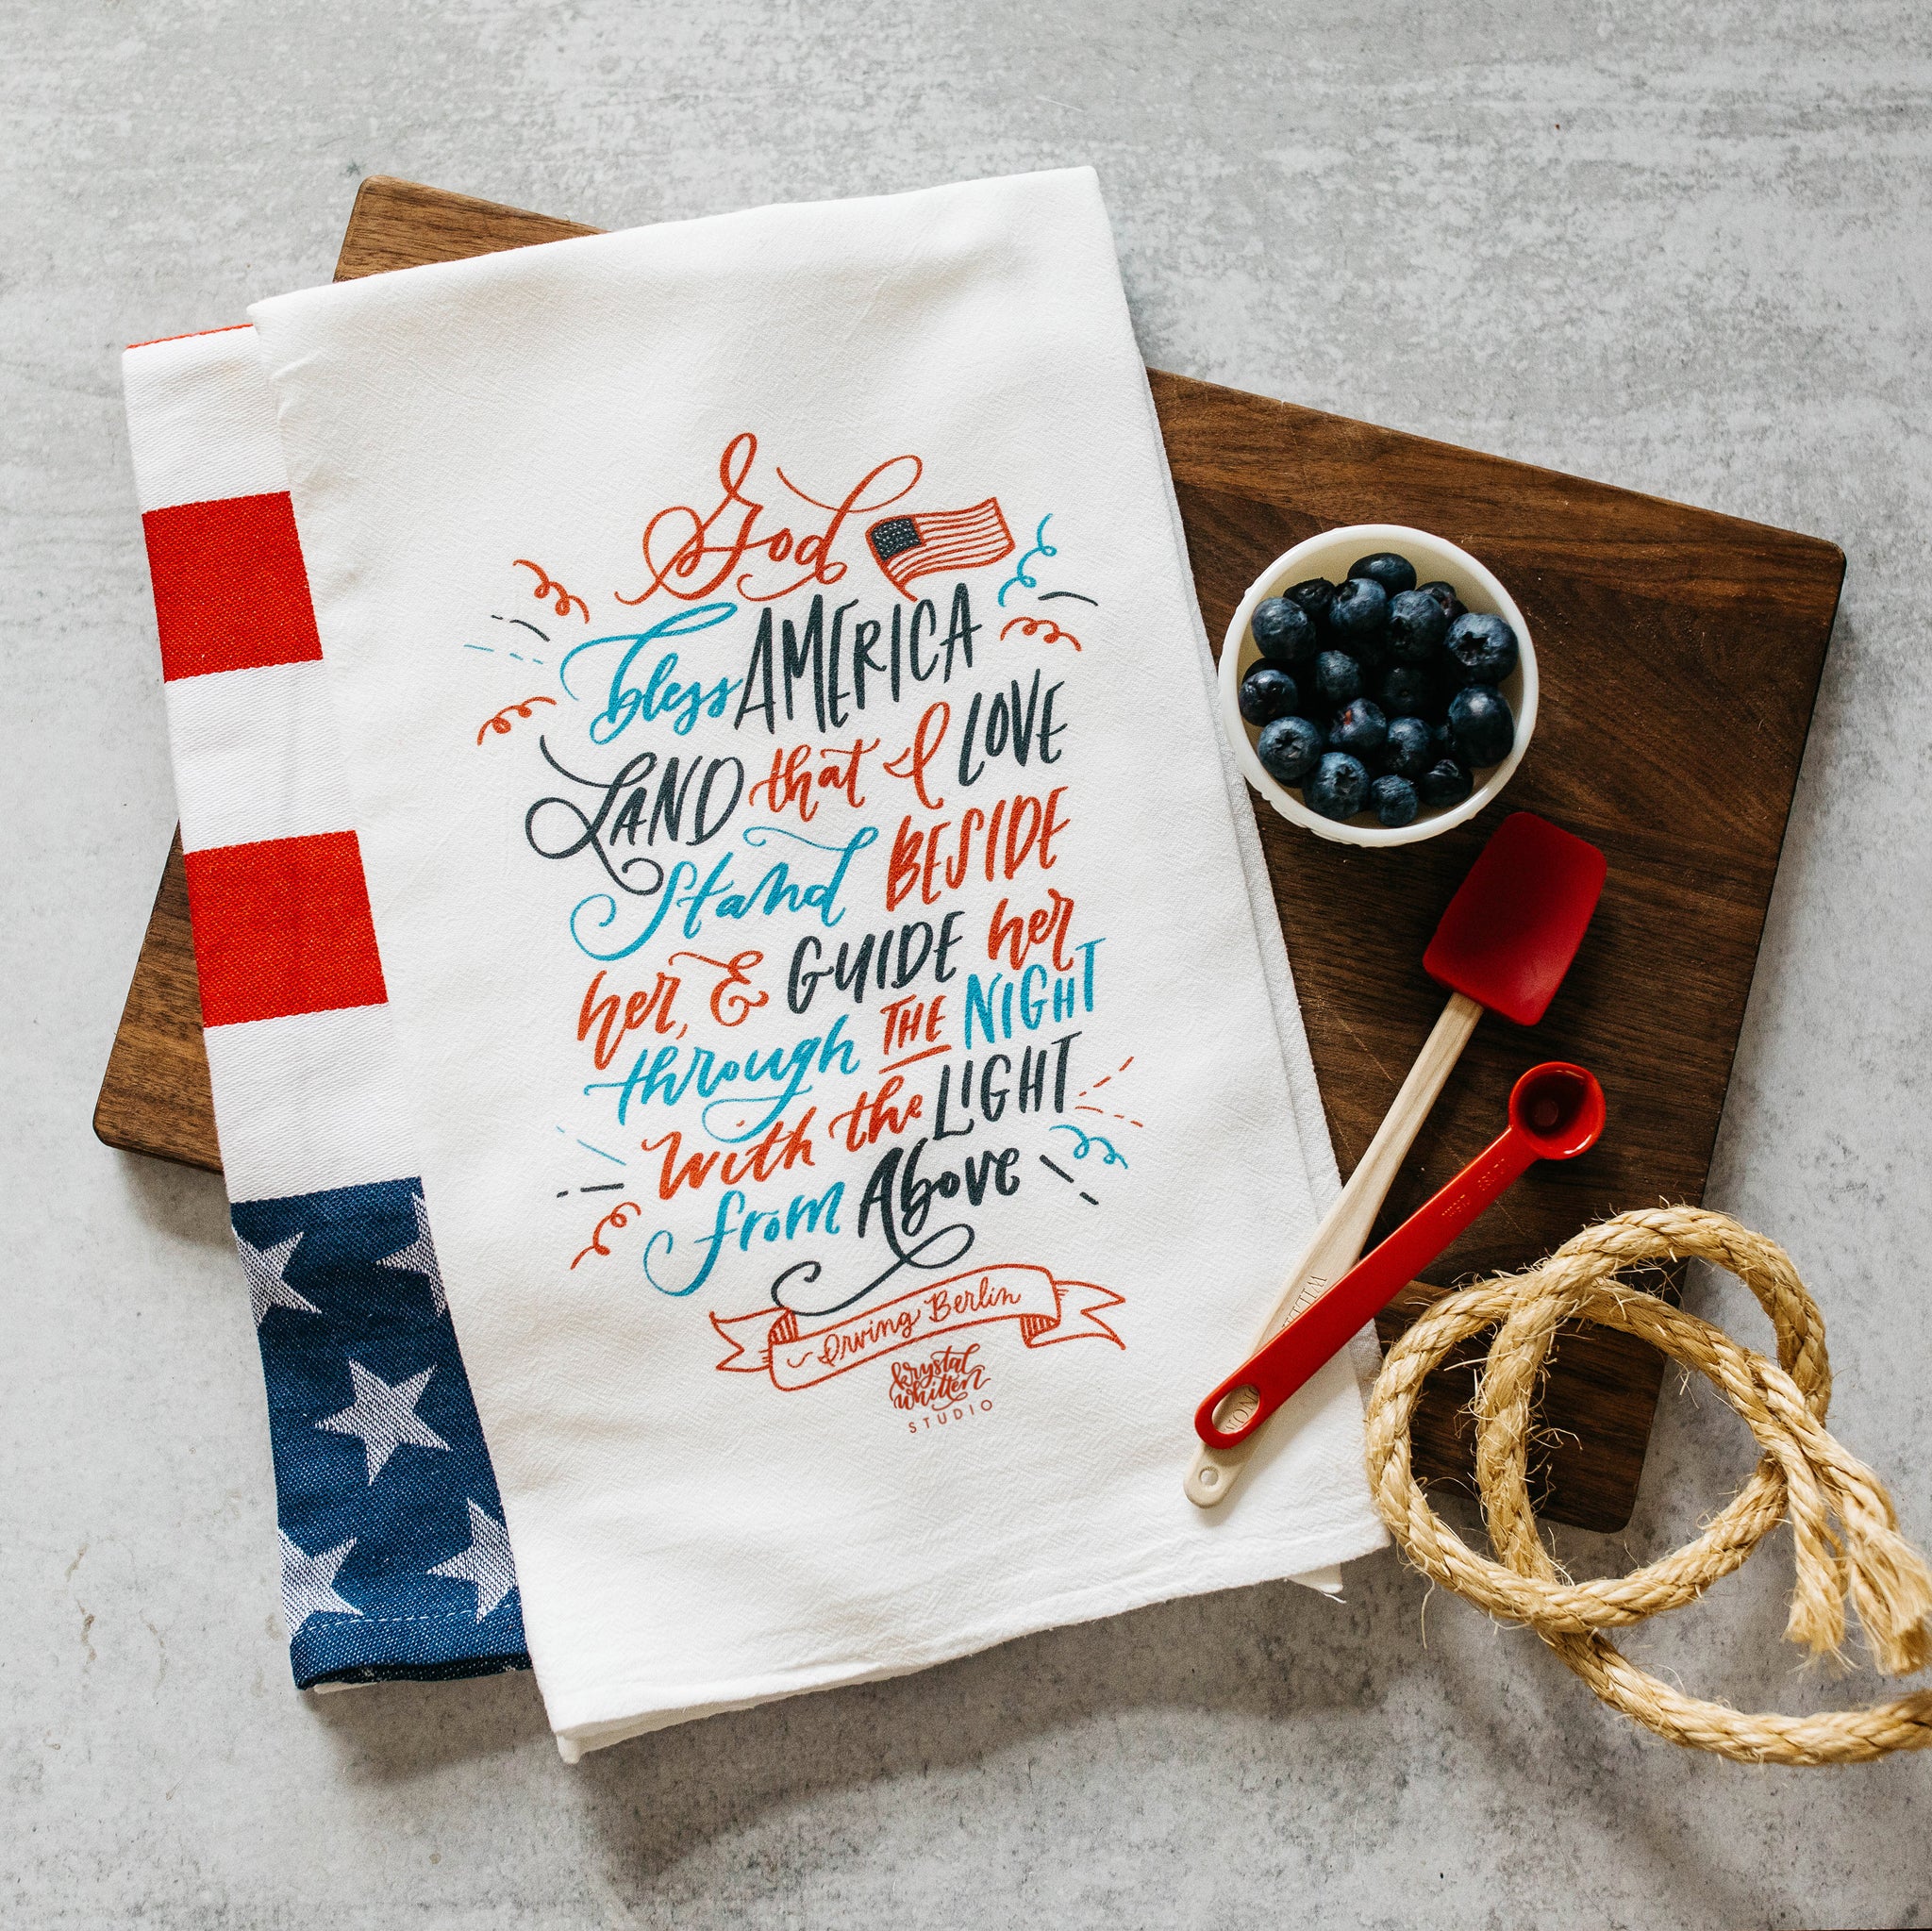 God
bless AMERICA
LAND that I LOVE
Stand BESIDE
her, & GUIDE her
through THE NIGHT
with the LIGHT
from Above
~Irving Berlin
krystal
whitten
STUDIO